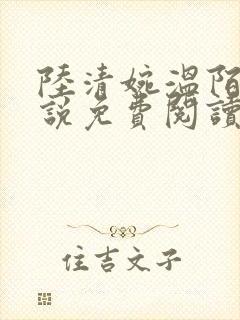 陸清婉溫陌
說免費閱讀
住吉文子